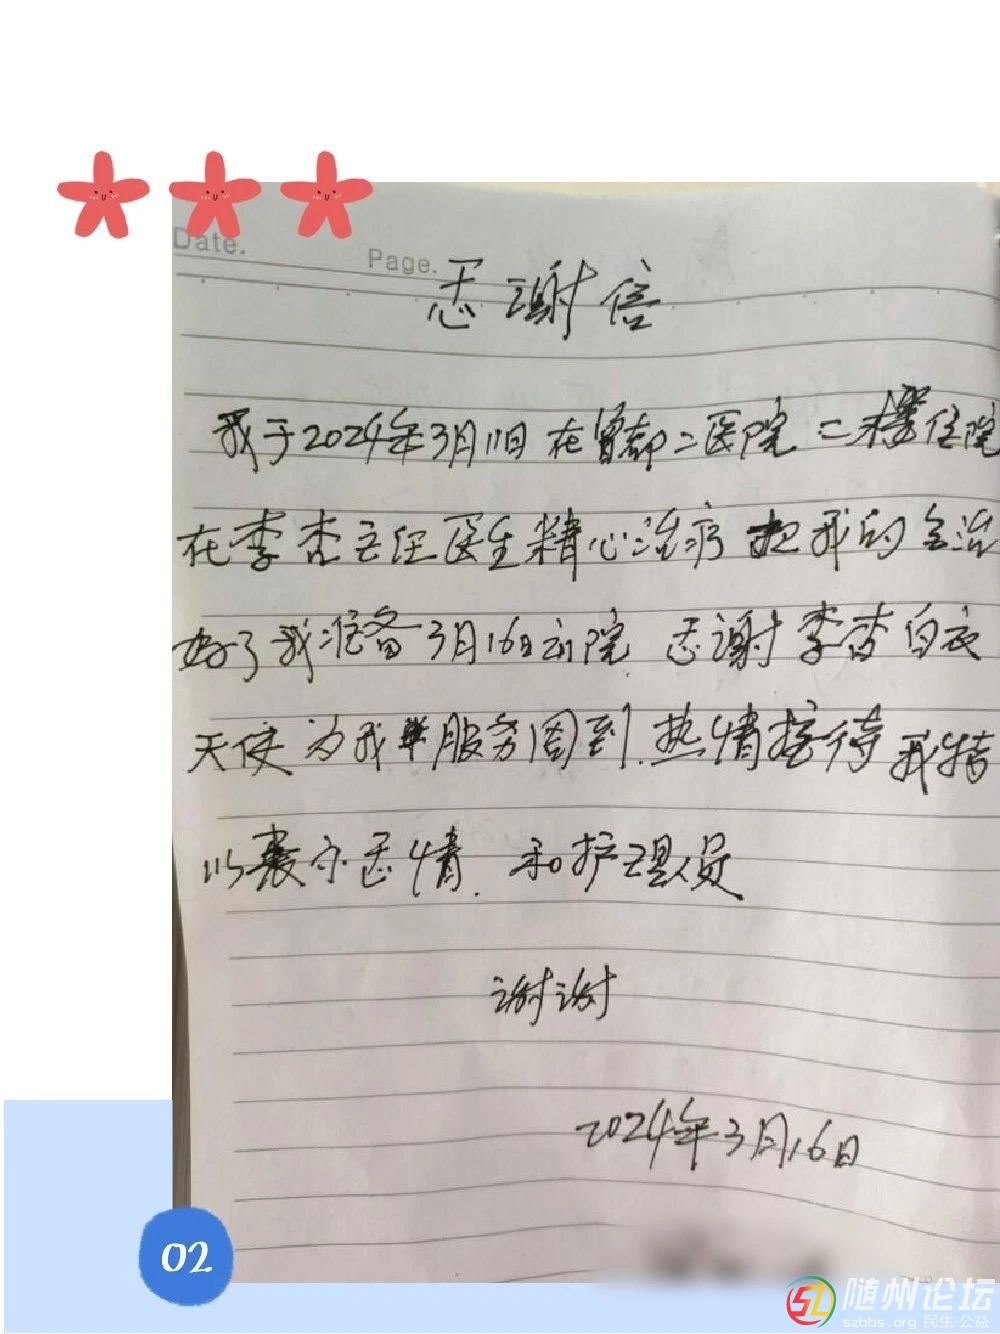 Date.
Page.
感谢信
我于2024年3月11日在曾都二医院二楼住院
在李杏主任医生精心治疗把我的 治
好了我准备3月16日出院 感谢李杏白衣
天使为我 服务周到.热情接待 我特
以表示 情.和护理员
谢谢
2024年3月16日
02
随州论坛
szbbs.org 民生·公益